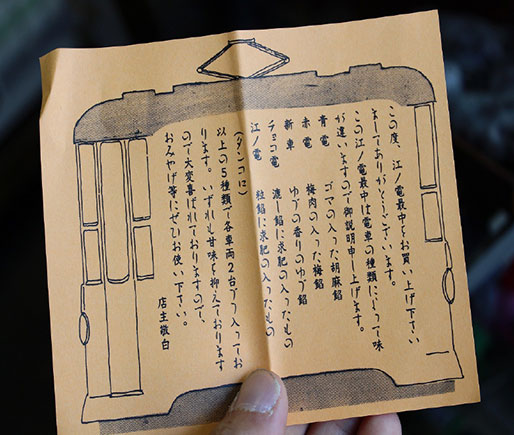 この度、江ノ電最中をお買い上げ下さい
ましてありがとうございます。
この江ノ電最中は電車の種類によって味
が違いますので御説明申し上げます。
青電 ゴマの入った胡麻餡
赤電 梅肉の入った梅餡
新車 ゆずの香りのゆず餡
チョコ電 漉し餡に求肥の入ったもの
江ノ電 粒餡に求肥の入ったもの
(タンコロ)
以上の5種類で各車両2台づつ入ってお
ります。いずれも甘味を抑えております
ので大変喜ばれておりますので、
おみやげ等にぜひお使い下さい。
店主敬白